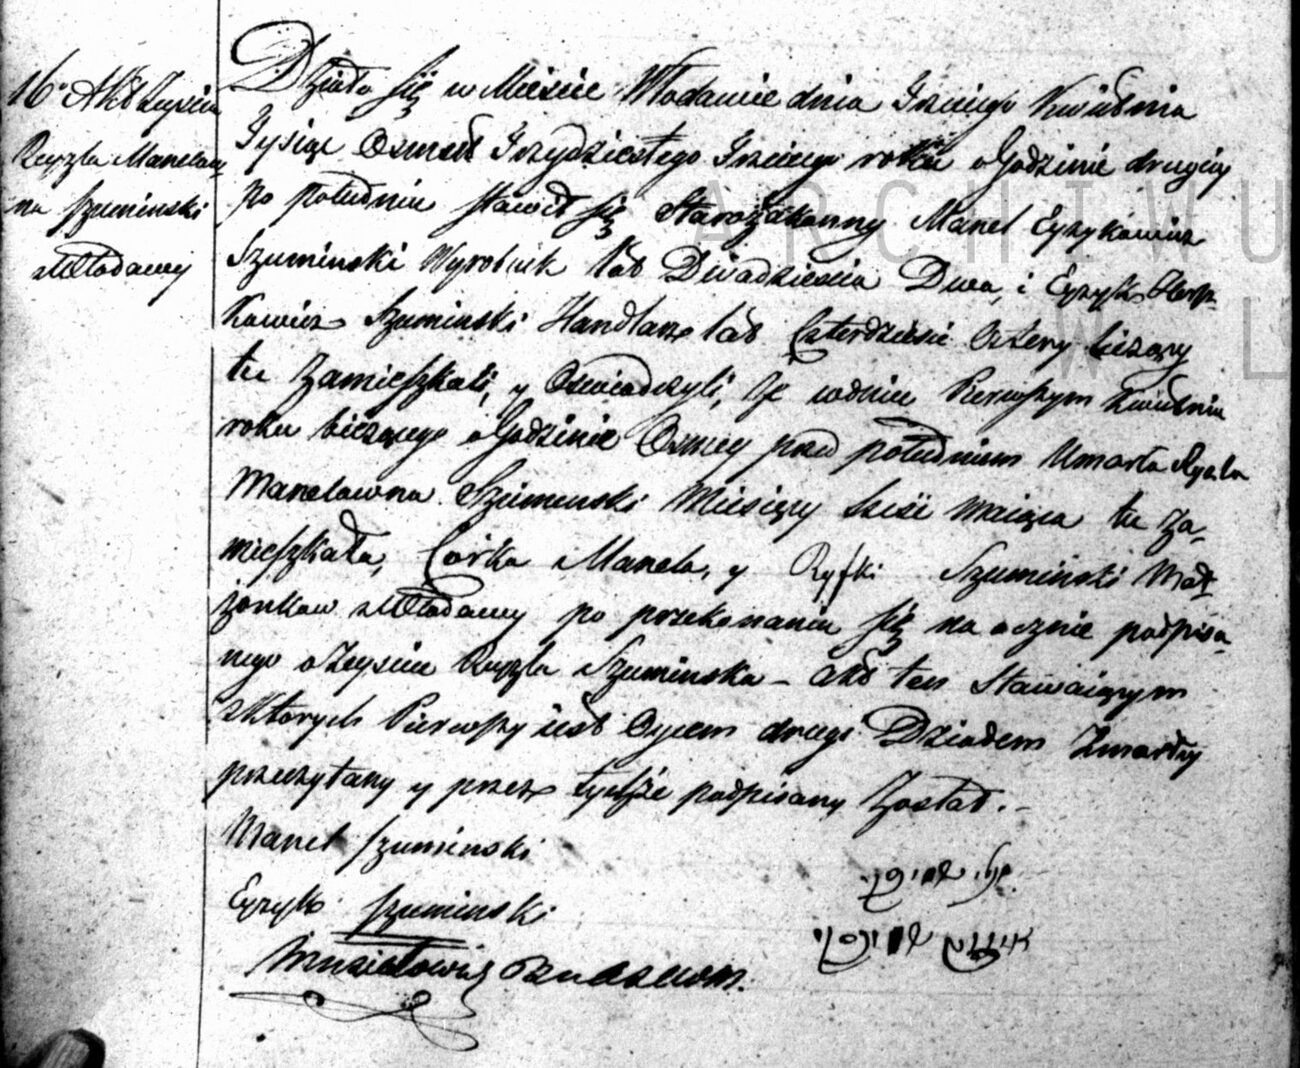 16. Akt Zeyścia
Ruyzla Manelow
na Szuminski
z Włodawy
Działo się w Mieście Włodawie dnia Trzeciego Kwietnia
Tysiąc Osmset Trzydziestego Trzeciego roku o Godzinie drugiey
po południu stawił się Starozakonny Manel Eyzykowicz
Szuminski Wyrobnik lat Dwadzieścia Dwa, i Eyzyk
kowicz Szuminski Handlarz lat Czterdzieści Cztery liczący
tu Zamieszkali, y Oświadczyli, że w dniu Pierwszym Kwietnia
roku bieżącego o Godzinie Osmey przed południem Umarła Ryzla
Manelowna Szuminski Miesięcy sześć maiąca tu za,
mieszkała, Corka Manela, y Ryfki Szuminski Mał
żonkow z Włodawy po przekonaniu się na ocznie podpisa,
nego o Zeyściu Ruyzla Szuminska - Akt ten Stawaiącym
z ktorych Pierwszy iest Oycem drugi Dziadem Zmarłey
przeczytany y przez tychże podpisany Został. -
Manel Szuminski
Eyzyk Szuminski